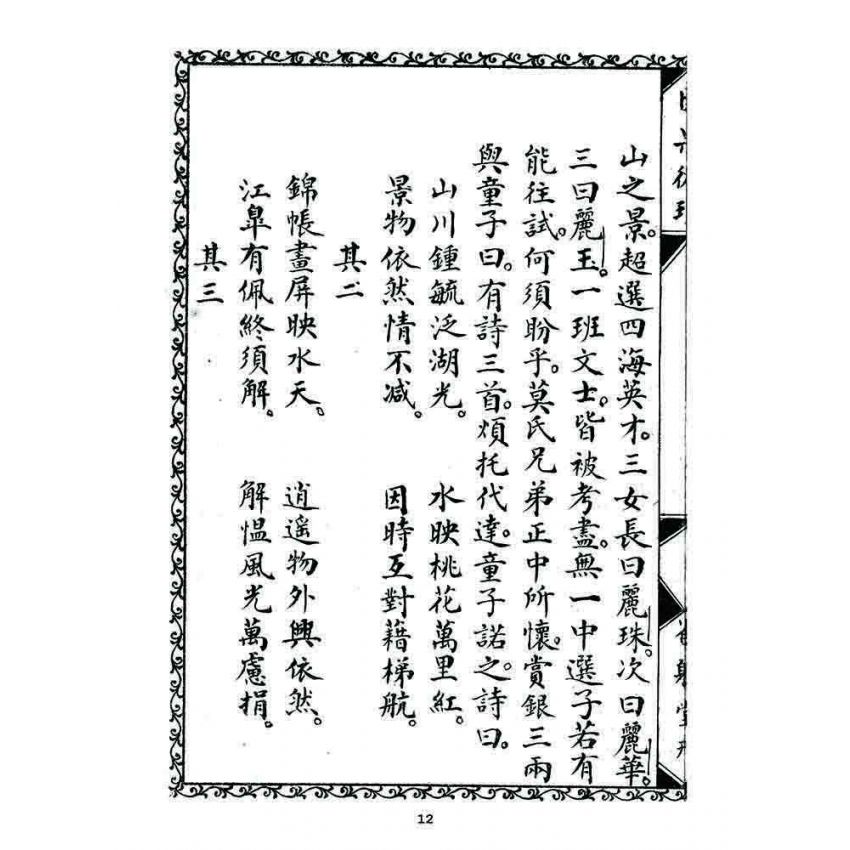 山之景。超選四海英才。三女長曰麗珠。次曰麗華。
三曰麗玉。一班文士。皆被考盡。無一中選子若有
能往試。何須盼乎。莫氏兄弟正中所懷。賞銀三兩
與童子曰。有詩三首。煩托代達。童子諾之。詩曰。
山川鍾毓泛湖光。 水映桃花萬里紅。
景物依然情不减。 因時互對藉梯航。
其二
錦帳畫屏映水天。 逍遥物外興依然。
江臯有佩終須解。 解愠風光萬慮捐。
其三
12